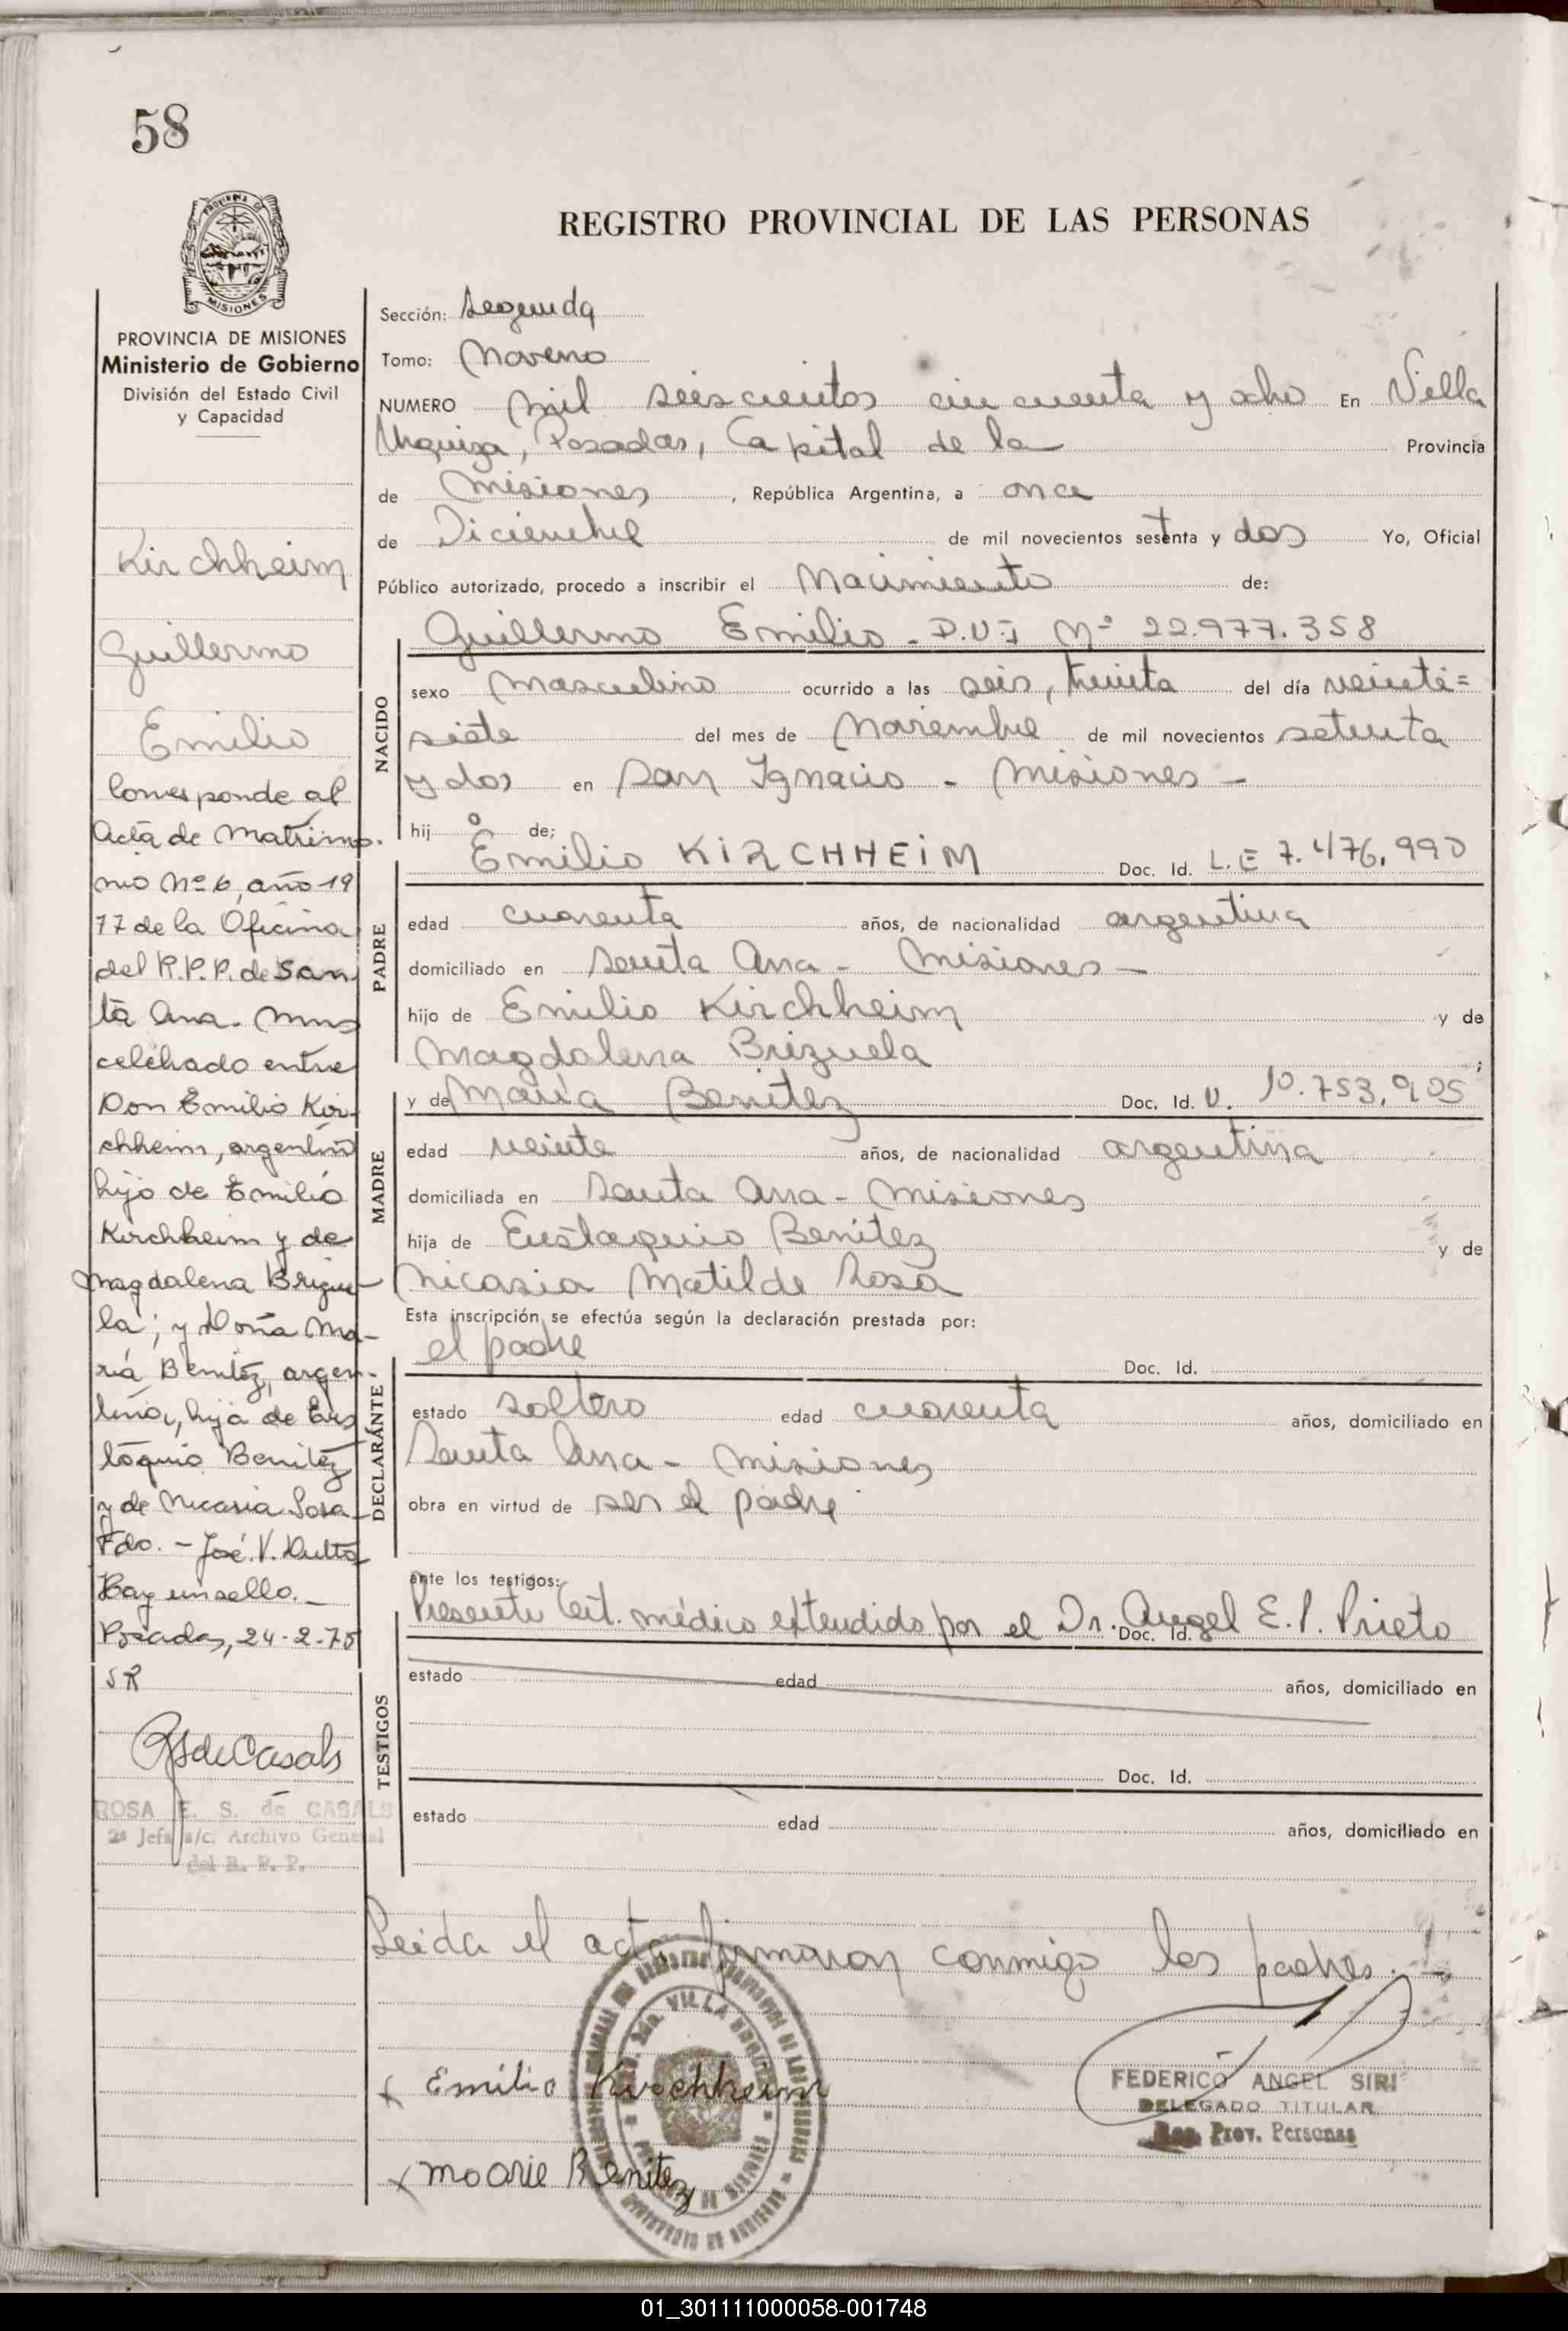 58
PROVINCIA DE
MISIONES
REGISTRO PROVINCIAL DE LAS PERSONAS
PROVINCIA DE MISIONES
Ministerio de Gobierno
División del Estado Civil
y Capacidad
Kirchheim
Guillermo
Emilio
Corresponde al
Acta de Matrimo-
nio Nº 6, año 19
77 de la Oficina
del R.P.P. de San
ta Ana. Mnes
celebrado entre
Don Emilio Kir-
chheim, argentino
hijo de Emilio
Kirchheim y de
Magdalena Brizue-
la; y Doña Ma-
ría Benítez, argen-
tina, hija de Eus
taquio Benítez
y de Nicasia Sosa
Fdo. - José V. Dutto
Hay un sello. -
Posadas, 24-2-78
SR
RSdeCasals
ROSA E. S. de CASALS
2ª Jefa a/c. Archivo General
del R. P. P.
Sección: Segunda
Tomo: Noveno
NUMERO mil seiscientos cincuenta y ocho En Villa
Urquiza, Posadas, Capital de la Provincia
de Misiones, República Argentina, a once
de Diciembre de mil novecientos setenta y dos Yo, Oficial
Público autorizado, procedo a inscribir el Nacimiento de:
NACIDO
Guillermo Emilio - D.U:I Nº 22.977.358
sexo Masculino ocurrido a las seis, treinta del día veinti=
siete del mes de Noviembre de mil novecientos setenta
y dos en San Ignacio - Misiones -
hijo de;
PADRE
Emilio KIRCHHEIM Doc. Id. L.E 7.476.990
edad cuarenta años, de nacionalidad argentina
domiciliado en Santa Ana - Misiones -
hijo de Emilio Kirchheim y de
Magdalena Brizuela ;
MADRE
y de María Benítez Doc. Id. U. 10.753.905
edad veinte años, de nacionalidad argentina
domiciliada en Santa Ana - Misiones
hija de Eustaquio Benítez y de
Nicasia Matilde Sosa
Esta inscripción se efectúa según la declaración prestada por:
DECLARÁNTE
el padre Doc. Id.
estado soltero edad cuarenta años, domiciliado en
Santa Ana - Misiones
obra en virtud de ser el padre
ante los testigos:
TESTIGOS
Presente Cert. médico extendido por el Dr. Angel E. P. Prieto
Doc. Id.
estado edad años, domiciliado en
Doc. Id.
estado edad años, domiciliado en
Leida el acta firmaron conmigo los padres. -
VILLA URQUIZA
x Emilio Kirchheim
FEDERICO ANGEL SIRI
DELEGADO TITULAR
Reg. Prov. Personas
x Moarie Benitez
01_301111000058-001748